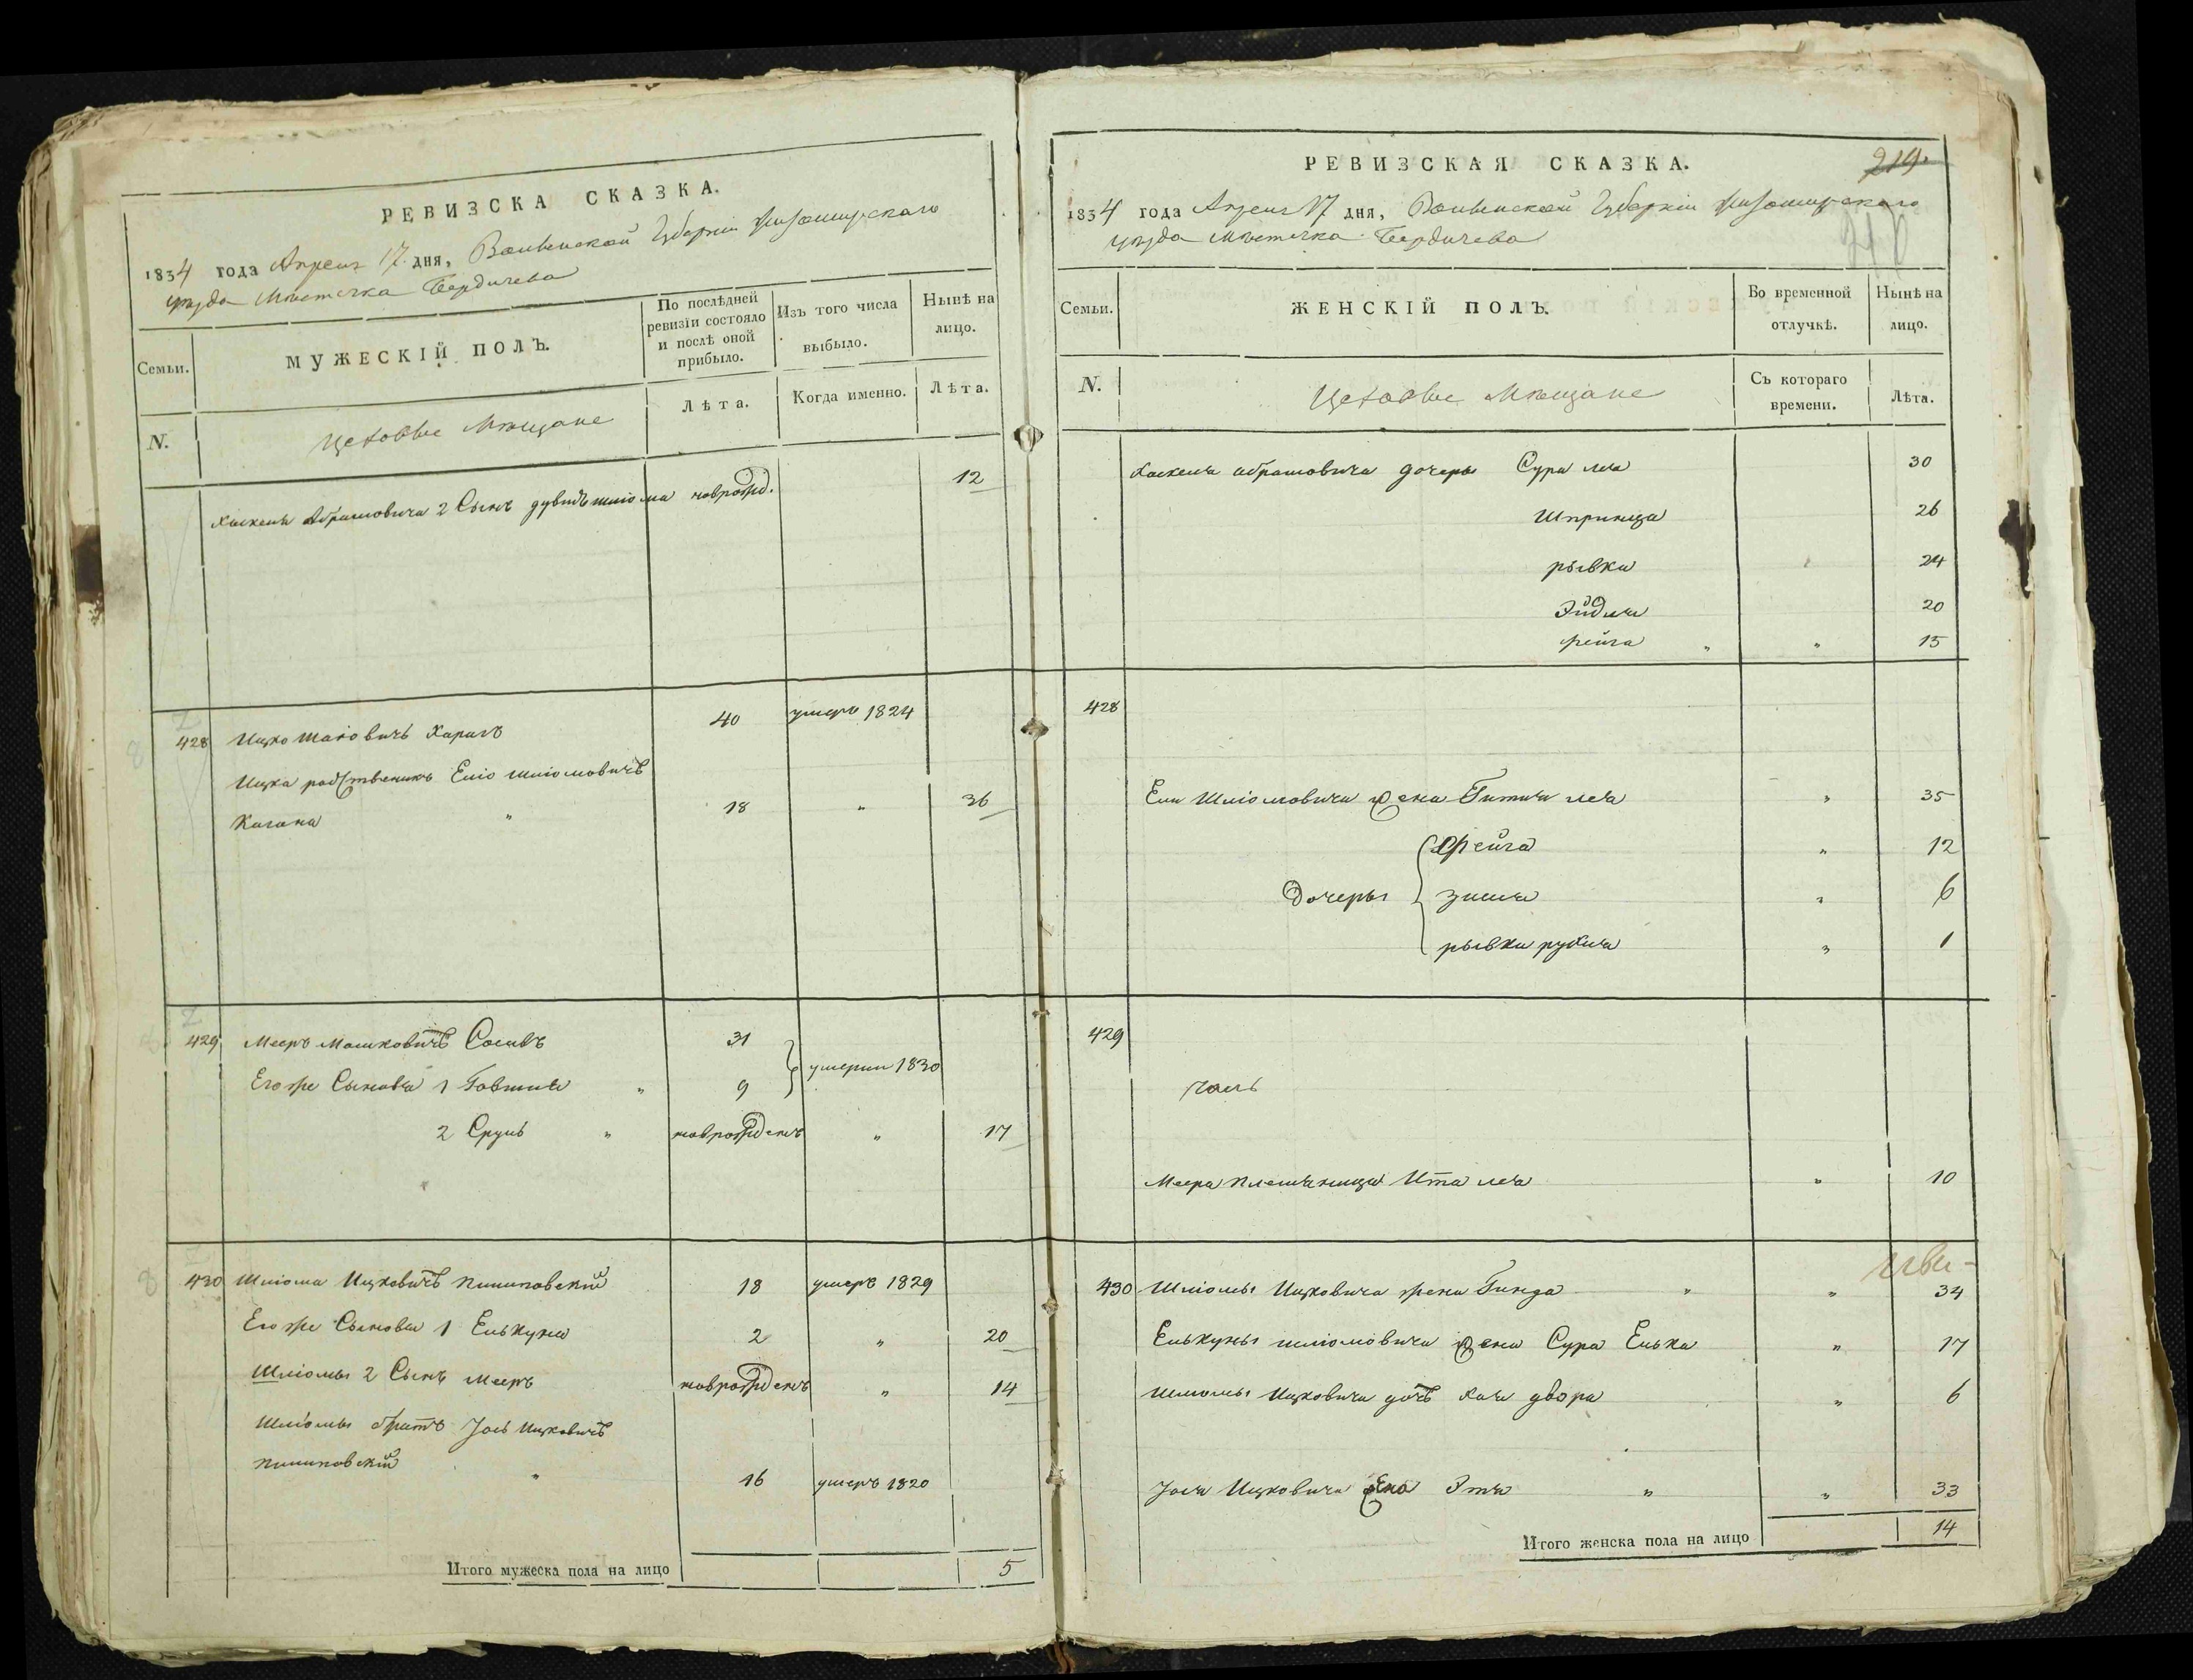 РЕВИЗСКА СКАЗКА.
1834 года Апреля 17 дня, Волынской Губернии Житомирскаго
уезда Местечка Бердичева
Семьи.
МУЖЕСКІЙ ПОЛЪ.
По послѣдней ревизіи состояло и послѣ оной прибыло.
Изъ того числа выбыло.
Нынѣ на лицо.
N.
Цеховые Мещане
Лѣта.
Когда именно.
Лѣта.
Хаскеля Абрамовича 2 Сынъ дувидъ шліома новрожд. 12
428 Ицко Маковичъ 40 умеръ 1824
Ицка родственикъ Еліо Шліомовичъ
Кагана " 18 " 36
429 Мееръ Мошковичъ 31
умерли 1830
Его же Сыновья 1 " 9
2 Сруль " новрожденъ " 17
430 Шліома Ицковичъ Пилиповскій 18 умеръ 1829
Его же Сыновья 1 Елькуна 2 " 20
Шліомы 2 Сынъ Мееръ новрожденъ " 14
Шліомы братъ Іось Ицковичъ
Пилиповскій " 16 умеръ 1820
Итого мужеска пола на лицо 5
РЕВИЗСКАЯ СКАЗКА.
219.
1834 года Апреля 17 дня, Волынской Губернии Житомирскаго
уезда Местечка Бердичева
Семьи.
ЖЕНСКІЙ ПОЛЪ.
Во временной отлучкѣ.
Нынѣ на лицо.
N.
Цеховые Мещане
Съ котораго времени.
Лѣта.
Хаскеля Абрамовича дочеры Сура леа 30
Шпринца 26
рывка 24
Эйдля 20
фейга " " 15
428
Ели Шліомовича жена Гитля леа " 35
фейга " 12
Дочеры зисля " 6
рывка рухля " 1
429
Меера племяница Ита леа " 10
430 Шліомы Ицковича жена Гинда " " 34
Елькуны шліомовича жена Сура Елька " 17
Шліомы Ицковича дочь Хая двора " 6
Іося Ицковича жена Этя " " 33
Итого женска пола на лицо 14